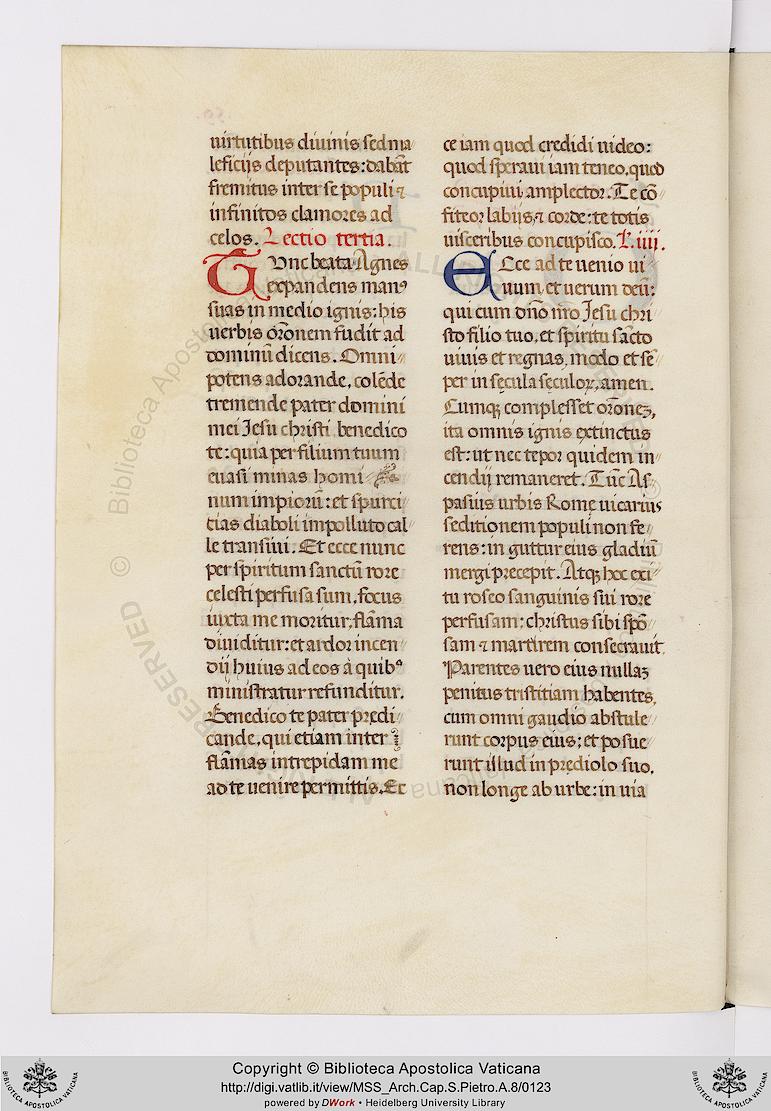 uirtutibus diuinis sed ma
leficijs deputantes: dabāt
fremitus inter se populi ⁊
infinitos clamores ad
celos. Lectio tertia.
TVnc beata Agnes
expandens manꝰ
suas in medio ignis: his
uerbis orōnem fudit ad
dominū dicens. Omni
potens adorande, colēde
tremende pater domini
mei Jesu christi benedico
te: quia per filium tuum
euasi minas homi
num impiorū: et spurci
cias diaboli impolluto cal
le transiui. Et ecce nunc
per spiritum sanctū rore
celesti perfusa sum, focus
iuxta me moritur, flāma
diuiditur: et ardor incen
dij huius ad eos à quibꝰ
ministratur refunditur.
Benedico te pater predi
cande, qui etiam inter
flāmas intrepidam me
ad te uenire permittis. Ec
ce iam quod credidi uideo:
quod speraui iam teneo, quod
concupiui amplector. Te cō
fiteor labijs, ⁊ corde: te totis
uisceribus concupisco. L. iiii.
ECce ad te uenio ui
uum, et uerum deū:
qui cum dn̄o nr̄o Jesu chri
sto filio tuo, et spiritu sācto
uiuis et regnas, modo et sē
per in sęcula sęculoꝝ, amen.
Cumqꝫ complesset orōneꝫ,
ita omnis ignis extinctus
est: ut nec tepor quidem in
cendij remaneret. Tūc As
pasius urbis Romę uicarius
seditionem populi non fe
rens: in guttur eius gladiū
mergi precepit. Atqꝫ hoc exi
tu roseo sanguinis sui rore
perfusam: christus sibi spō
sam ⁊ martirem consecrauit.
Parentes uero eius nullaꝫ
penitus tristitiam habentes,
cum omni gaudio abstule
runt corpus eius: et posue
runt illud in prędiolo suo,
non longe ab urbe: in uia
Copyright © Biblioteca Apostolica Vaticana
http://digi.vatlib.it/view/MSS_Arch.Cap.S.Pietro.A.8/0123
powered by DWork • Heidelberg University Library
BIBLIOTECA APOSTOLICA VATICANA
BIBLIOTECA APOSTOLICA VATICANA